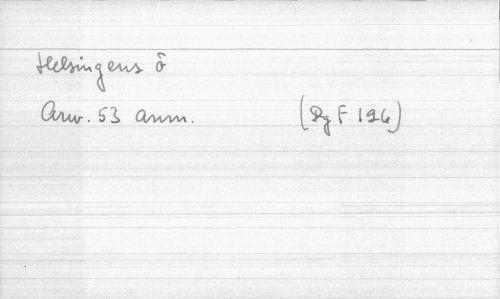 Helsingens ö
Arw. 53 anm. (Rg F 126)